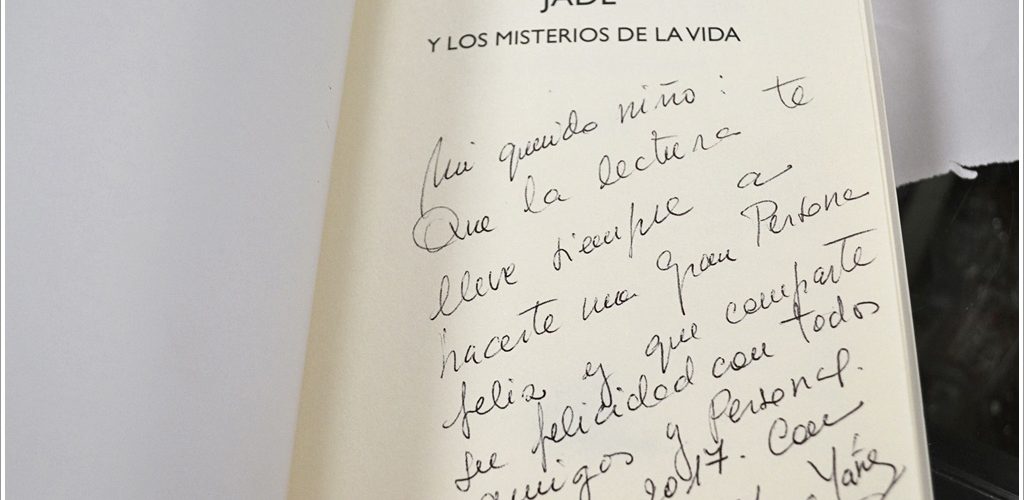 JADE
Y LOS MISTERIOS DE LA VIDA
Mi querido niño:
Que la lectura te
lleve siempre a
hacerte una gran Persona
feliz y que comparte
su felicidad con todos
amigos y Personal.
2017. Con
Yáñez